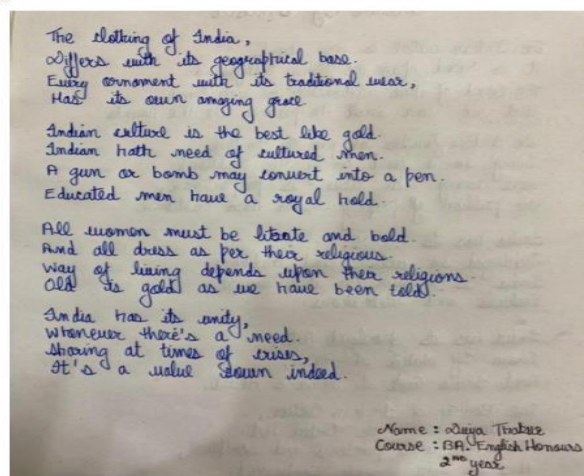 The clothing of India,
Differs with its geographical base.
Every ornament with its traditional wear,
Has its own amazing grace.
Indian culture is the best like gold.
Indian hath need of cultured men.
A gun or bomb may convert into a pen.
Educated men have a royal hold.
All women must be literate and bold.
And all dress as per their religious.
Way of living depends upon their religions.
Old is gold as we have been told.
India has its unity,
Whenever there's a need.
Sharing at times of crises,
It's a value down indeed.
Name :
Course : BA. English Honours
2nd year